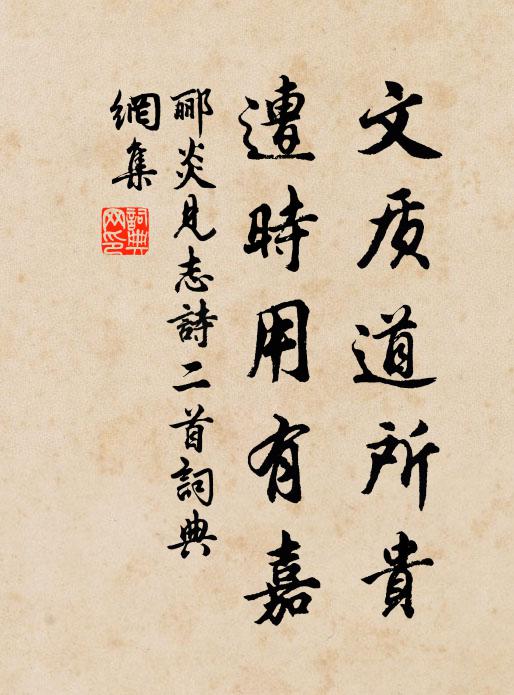 文质道所貴
遭時用有嘉
郦炎見志詩二首詞典
網集
詞典網印